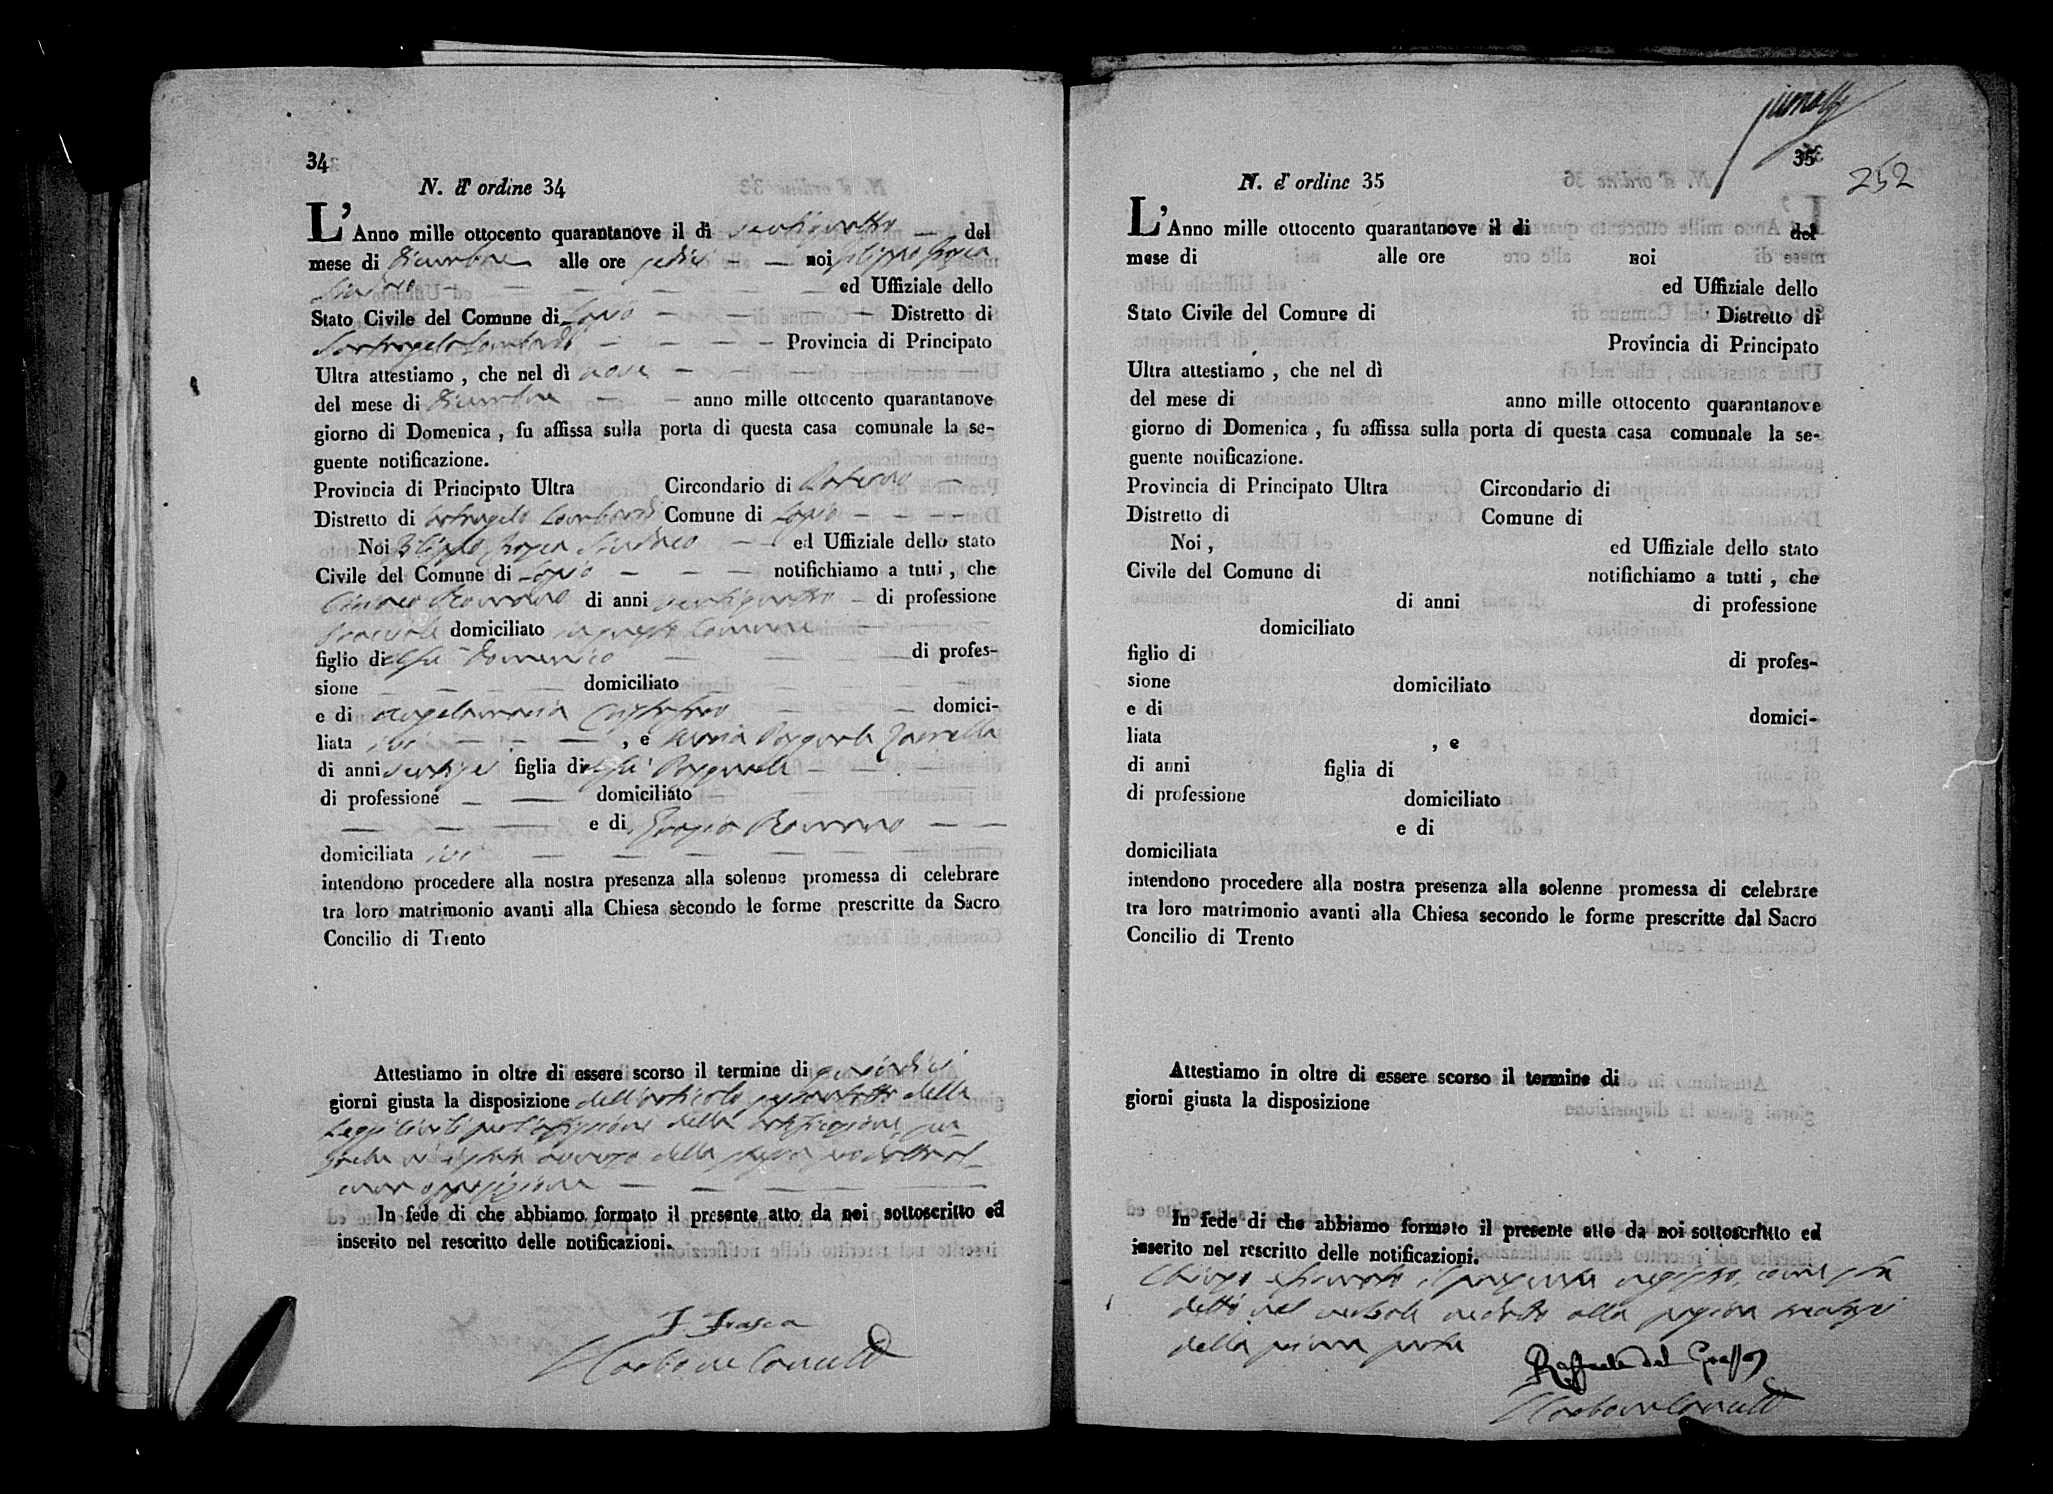 34
N. d' ordine 34
L'Anno mille ottocento quarantanove il di ventiquattro del
mese di Dicembre alle ore sedici noi Filippo Frasca
Sindaco ed Uffiziale dello
Stato Civile del Comune di Lapio Distretto di
Santangelo Lombardi Provincia di Principato
Ultra attestiamo , che nel dì nove
del mese di Dicembre anno mille ottocento quarantanove
giorno di Domenica , fu affissa sulla porta di questa casa comunale la se-
guente notificazione.
Provincia di Principato Ultra Circondario di Paterno
Distretto di Santangelo Lombardi Comune di Lapio
Noi Filippo Frasca Sindaco ed Uffiziale dello stato
Civile del Comune di Lapio notifichiamo a tutti , che
Ciriaco Romano di anni ventiquattro di professione
domiciliato in questo Comune
figlio di Domenico di profes-
sione domiciliato
e di Angelamaria domici-
liata ivi , e Maria Pasquala
di anni figlia di Pasquale
di professione domiciliato
e di Romano
domiciliata ivi
intendono procedere alla nostra presenza alla solenne promessa di celebrare
tra loro matrimonio avanti alla Chiesa secondo le forme prescritte da Sacro
Concilio di Trento
Attestiamo in oltre di essere scorso il termine di quindici
giorni giusta la disposizione dell'articolo sessantotto della
Leggi Civili per l'affissione della notificazione, sen
della stessa prodotta al-
cuna opposizione
In fede di che abbiamo formato il presente atto da noi sottoscritto ed
inserito nel rescritto delle notificazioni.
F. Frasca
35
252
N. d' ordine 35
L'Anno mille ottocento quarantanove il di del
mese di alle ore noi
ed Uffiziale dello
Stato Civile del Comune di Distretto di
Provincia di Principato
Ultra attestiamo , che nel dì
del mese di anno mille ottocento quarantanove
giorno di Domenica , fu affissa sulla porta di questa casa comunale la se-
guente notificazione.
Provincia di Principato Ultra Circondario di
Distretto di Comune di
Noi , ed Uffiziale dello stato
Civile del Comune di notifichiamo a tutti , che
di anni di professione
domiciliato
figlio di di profes-
sione domiciliato
e di domici-
liata , e
di anni figlia di
di professione domiciliato
e di
domiciliata
intendono procedere alla nostra presenza alla solenne promessa di celebrare
tra loro matrimonio avanti alla Chiesa secondo le forme prescritte dal Sacro
Concilio di Trento
Attestiamo in oltre di essere scorso il termine di
giorni giusta la disposizione
In fede di che abbiamo formato il presente atto da noi sottoscritto ed
inserito nel rescritto delle notificazioni.
Chiuso e firmato il presente registro, come si è
detto nel verbale redatto alla pagina
della prima parte
Raffaele del Grosso